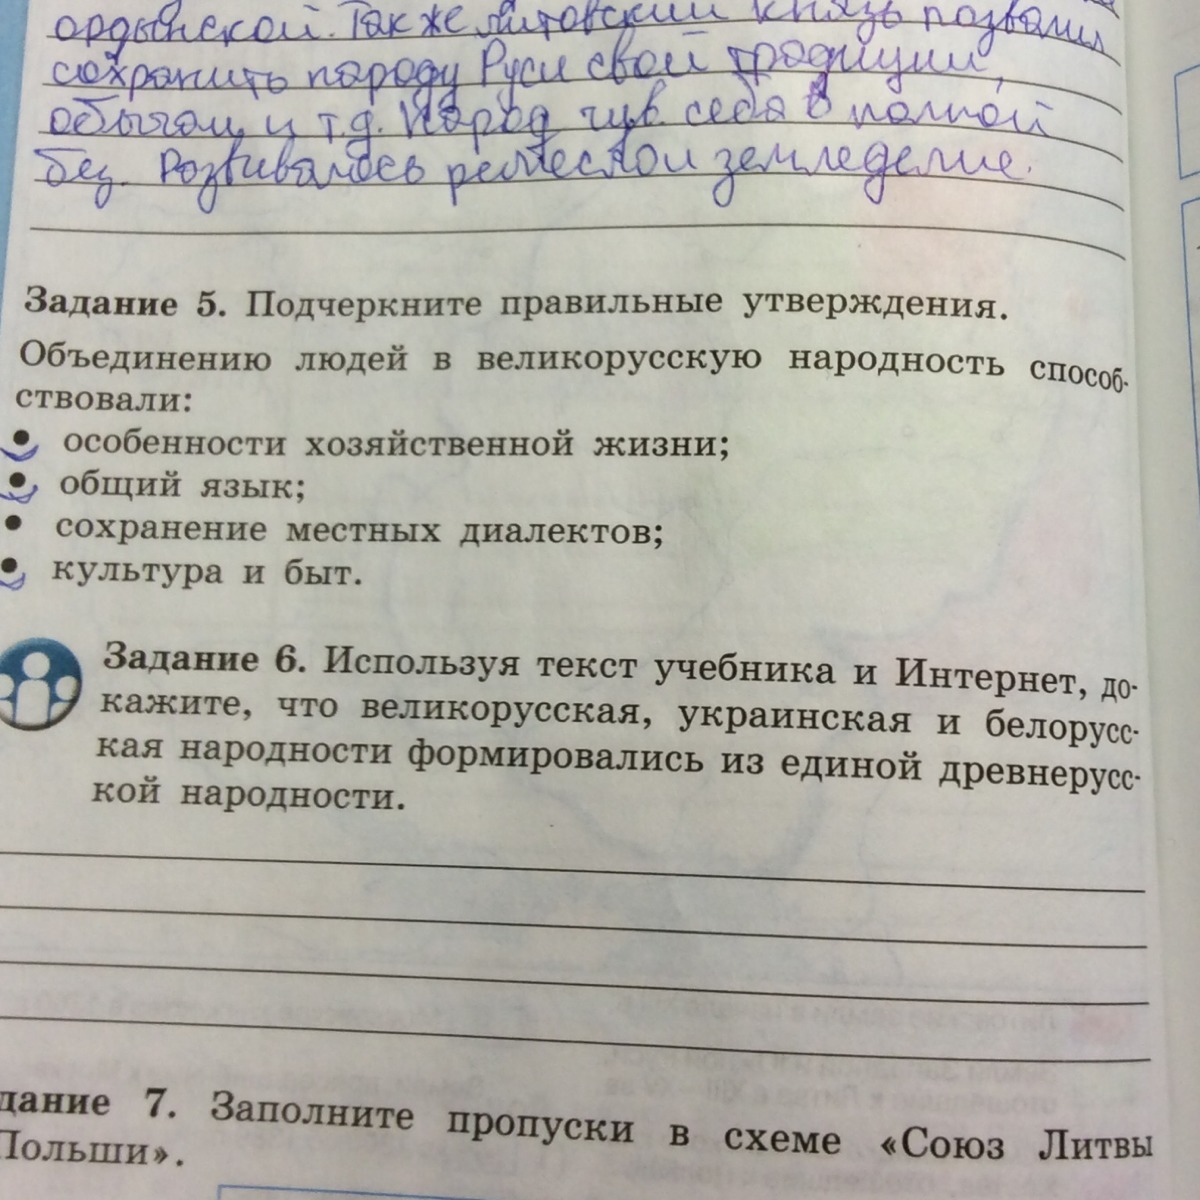 ордынской. Также литовский князь позволил
сохранить народу Руси свои традиции,
обычаи, и т.д. Народ чув. себя в полной
без. Развивалось ремесло и земледелие.
Задание 5. Подчеркните правильные утверждения.
Объединению людей в великорусскую народность способ-
ствовали:
• особенности хозяйственной жизни;
• общий язык;
• сохранение местных диалектов;
• культура и быт.
Задание 6. Используя текст учебника и Интернет, до-
кажите, что великорусская, украинская и белорусс-
кая народности формировались из единой древнерусс-
кой народности.
дание 7. Заполните пропуски в схеме «Союз Литвы
Польши».